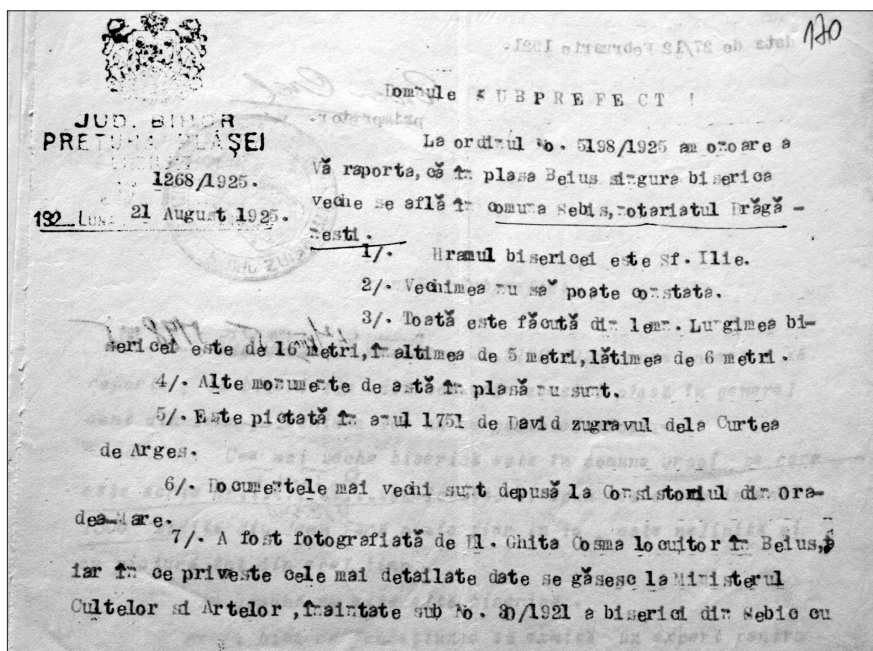 170
Domnule SUBPREFECT !
JUD. BIHOR
PRETURA PLĂȘEI
La ordinul No. 5198/1925 am onoare a
1268/1925.
Vă raporta, că în plasa Beius singura biserica
192 Luna 21 August 1925.
veche se află în comuna Sebis, notariatul Drăgă -
nesti.
1/. Hramul bisericei este Sf. Ilie.
2/. Vechimea nu să poate constata.
3/. Toată este făcută din lemn. Lungimea bi-
sericei este de 16 metri, înaltimea de 5 metri, lătimea de 6 metri.
4/. Alte monumente de astă în plasă nu sunt.
5/. Este pictată în anul 1751 de David zugravul dela Curtea
de Arges.
6/. Documentele mai vechi sunt depusă la Consistoriul din Ora-
dea-Mare.
7/. A fost fotografiată de Dl. Ghita Cosma locuitor în Beius,
iar în ce priveste cele mai detailate date se găsesc la Ministerul
Cultelor si Artelor, înaintate sub No. 30/1921 a biserici din Sebic cu